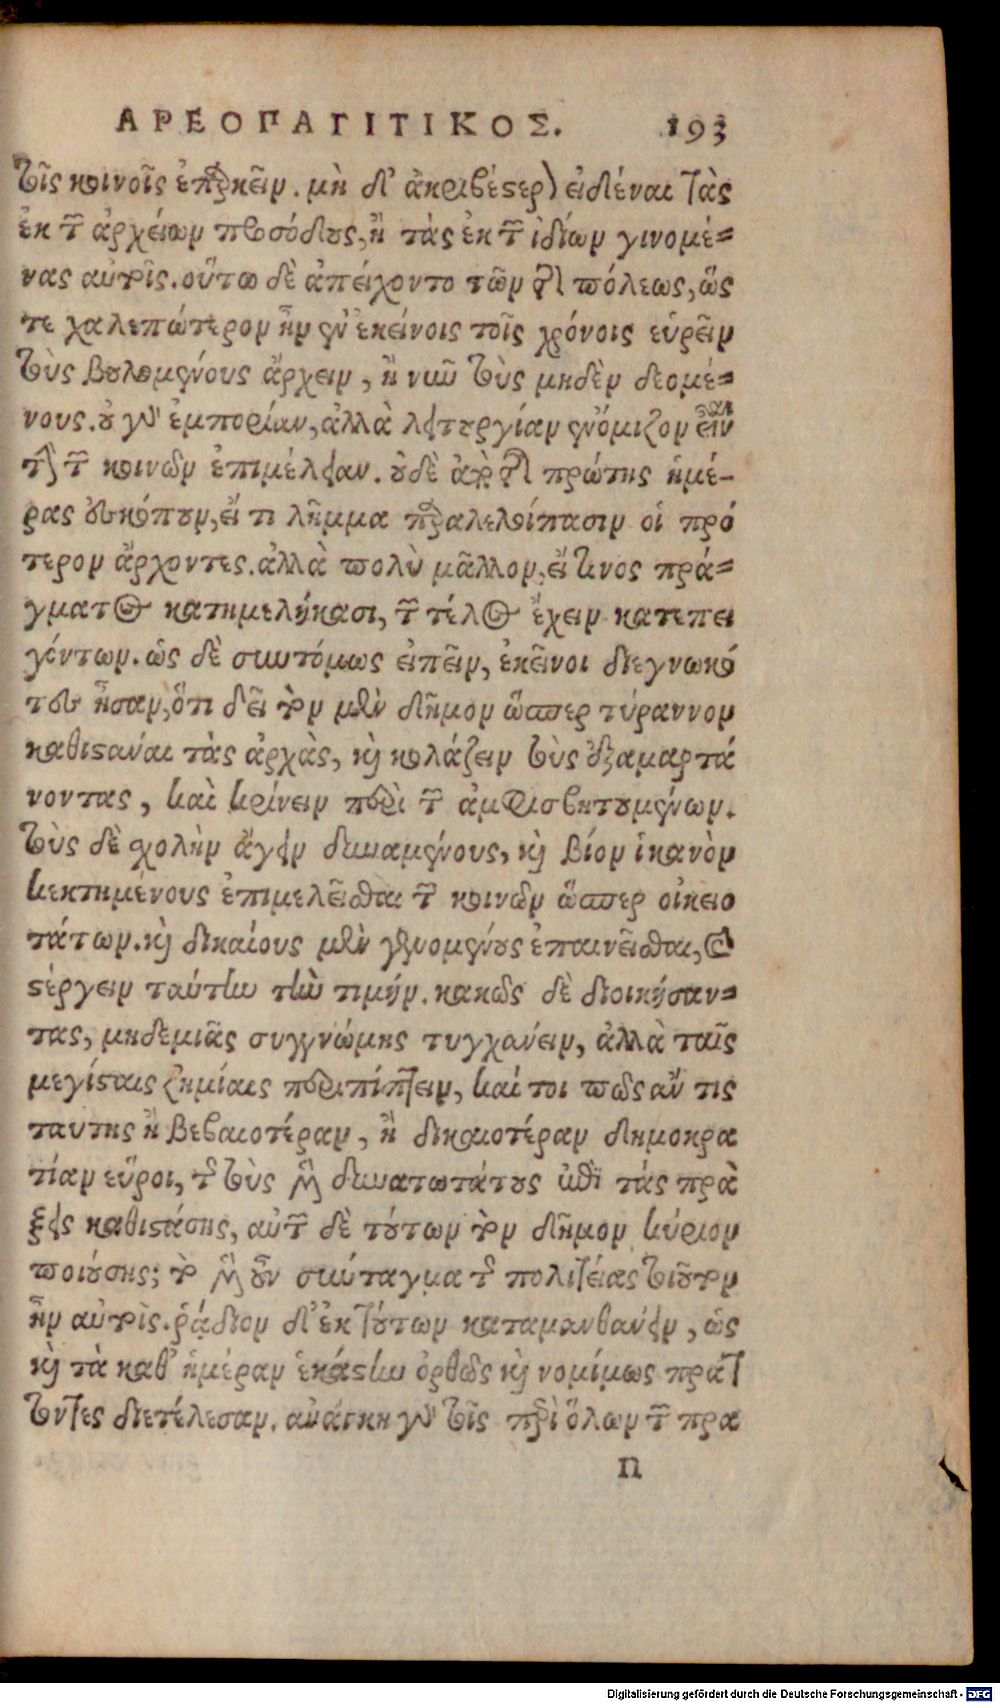 ΑΡΕΟΠΑΓΙΤΙΚΟΣ. 193
τοῖς κοινοῖς ἐπαρκεῖν. μὴ δ' ἀκριβέστερον εἰδέναι τὰς
ἐκ τῶν ἀρχείων προσόδους, ἢ τὰς ἐκ τῶν ἰδίων γινομέ=
νας αὐτοῖς. οὕτω δὲ ἀπείχοντο τῶν τῆς πόλεως, ὥς
τε χαλεπώτερον ἦν ἐν ἐκείνοις τοῖς χρόνοις εὑρεῖν
τοὺς βουλομένους ἄρχειν, ἢ νῦν τοὺς μηδὲν δεομέ=
νους. οὐ γὰρ ἐμπορίαν, ἀλλὰ λειτουργίαν ἐνόμιζον εἶναι
τὴν τῶν κοινῶν ἐπιμέλειαν. οὐδὲ ἀπὸ τῆς πρώτης ἡμέ-
ρας ἐσκόπουν, εἴ τι λῆμμα παραλελοίπασιν οἱ πρό
τερον ἄρχοντες. ἀλλὰ πολὺ μᾶλλον, εἴ τινος πρά=
γματος κατημελήκασι, τῶν τέλος ἔχειν κατεπει
γόντων. ὡς δὲ συντόμως εἰπεῖν, ἐκεῖνοι διεγνωκό
τες ἦσαν, ὅτι δεῖ τὸν μὲν δῆμον ὥσπερ τύραννον
καθιστάναι τὰς ἀρχὰς, καὶ κολάζειν τοὺς ἐξαμαρτά
νοντας, καὶ κρίνειν περὶ τῶν ἀμφισβητουμένων.
τοὺς δὲ σχολὴν ἄγειν δυναμένους, καὶ βίον ἱκανὸν
κεκτημένους ἐπιμελεῖσθαι τῶν κοινῶν ὥσπερ οἰκειο
τάτων. καὶ δικαίους μὲν γενομένους ἐπαινεῖσθαι, καὶ
στέργειν ταύτην τὴν τιμήν. κακῶς δὲ διοικήσαν=
τας, μηδεμιᾶς συγγνώμης τυγχάνειν, ἀλλὰ ταῖς
μεγίσταις ζημίαις περιπίπτειν, καί τοι πῶς ἄν τις
ταύτης ἢ βεβαιοτέραν, ἢ δικαιοτέραν δημοκρα
τίαν εὕροι, τῆς τοὺς μὲν δυνατωτάτους ἐπὶ τάς πρὰ
ξεις καθιστάσης, αὐτῶν δὲ τούτων τὸν δῆμον κύριον
ποιούσης; τὸ μὲν οὖν σύνταγμα τῆς πολιτείας τοιοῦτον
ἦν αὐτοῖς. ῥᾴδιον δ' ἐκ τούτων καταμανθάνειν, ὡς
καὶ τὰ καθ' ἡμέραν ἑκάστην ὀρθῶς καὶ νομίμως πράτ
τοντες διετέλεσαν. ἀνάγκη γὰρ τοῖς περὶ ὅλων τῶν πρα
n
Digitalisierung gefördert durch die Deutsche Forschungsgemeinschaft - DFG